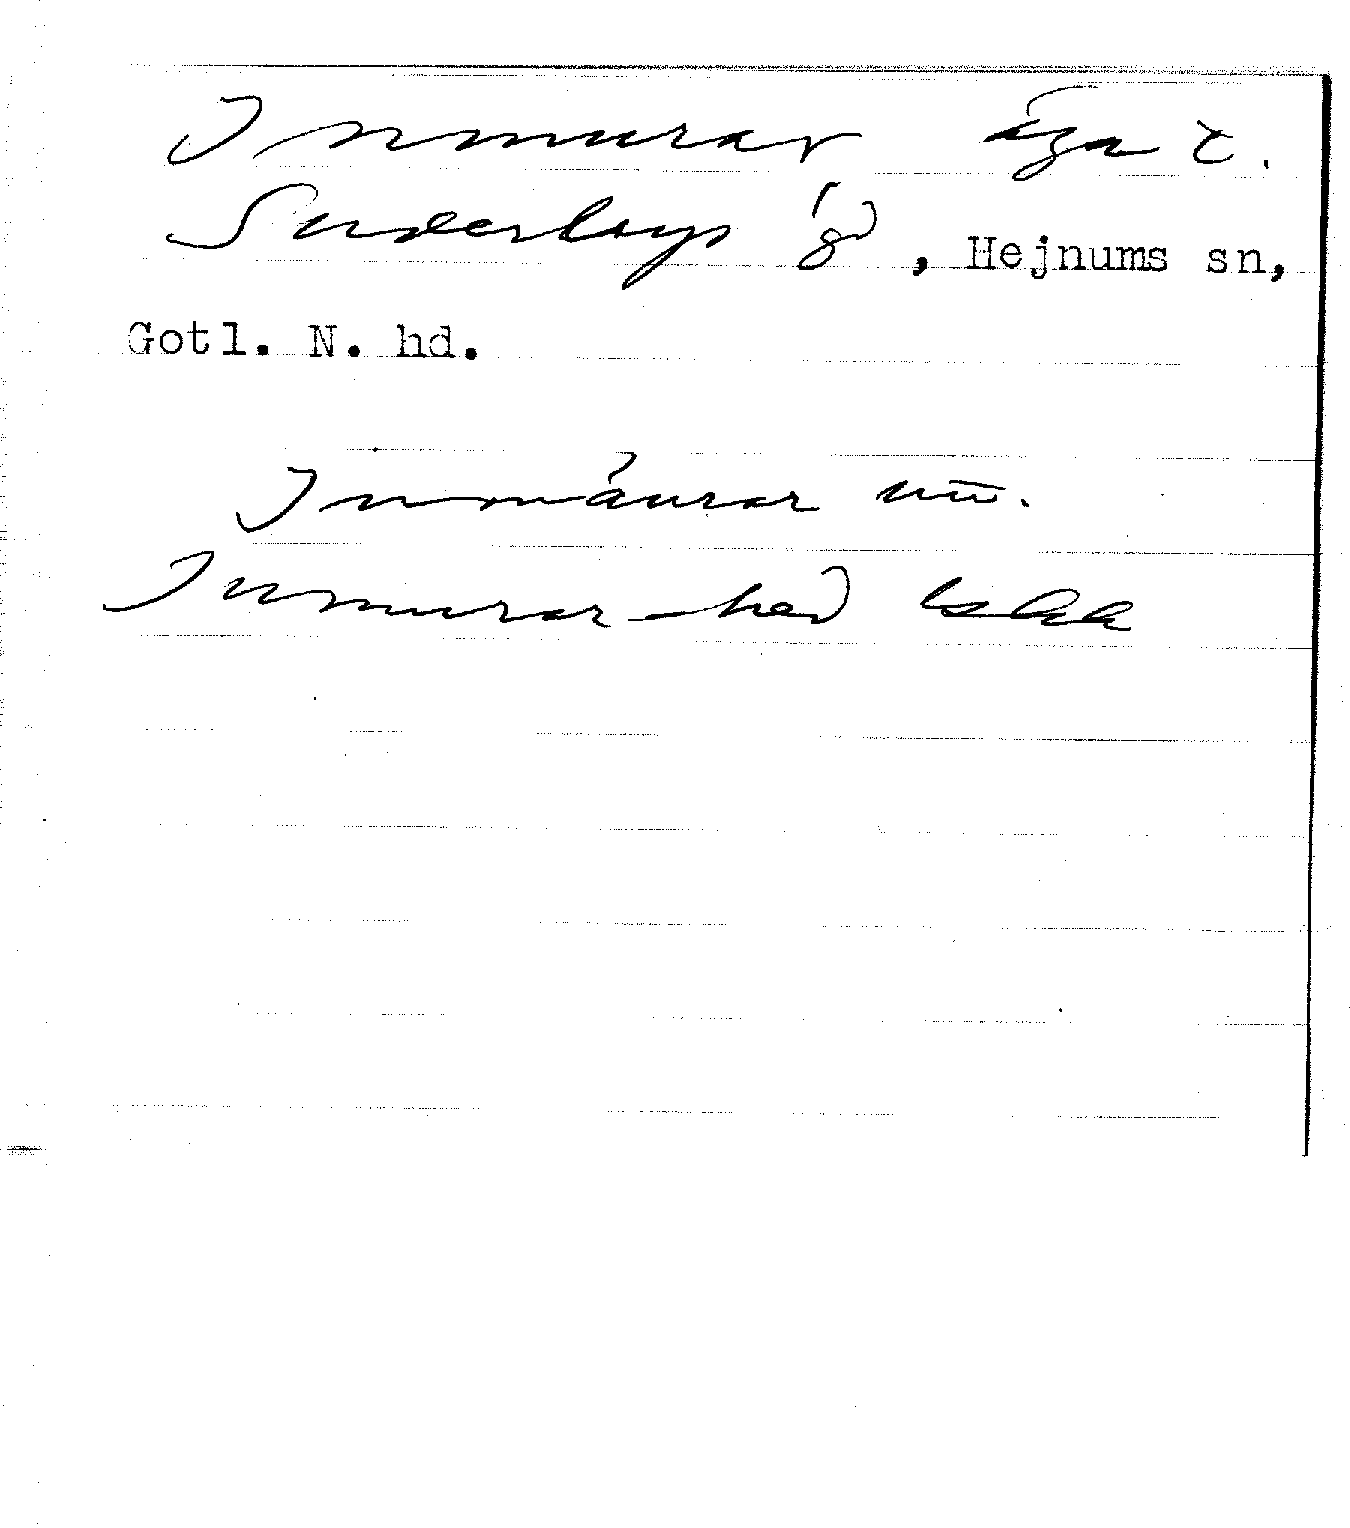 Inmurar äga t.
Suderbys gd, Hejnums sn,
Gotl. N. hd.
Inmåurar
Inmurar-hed